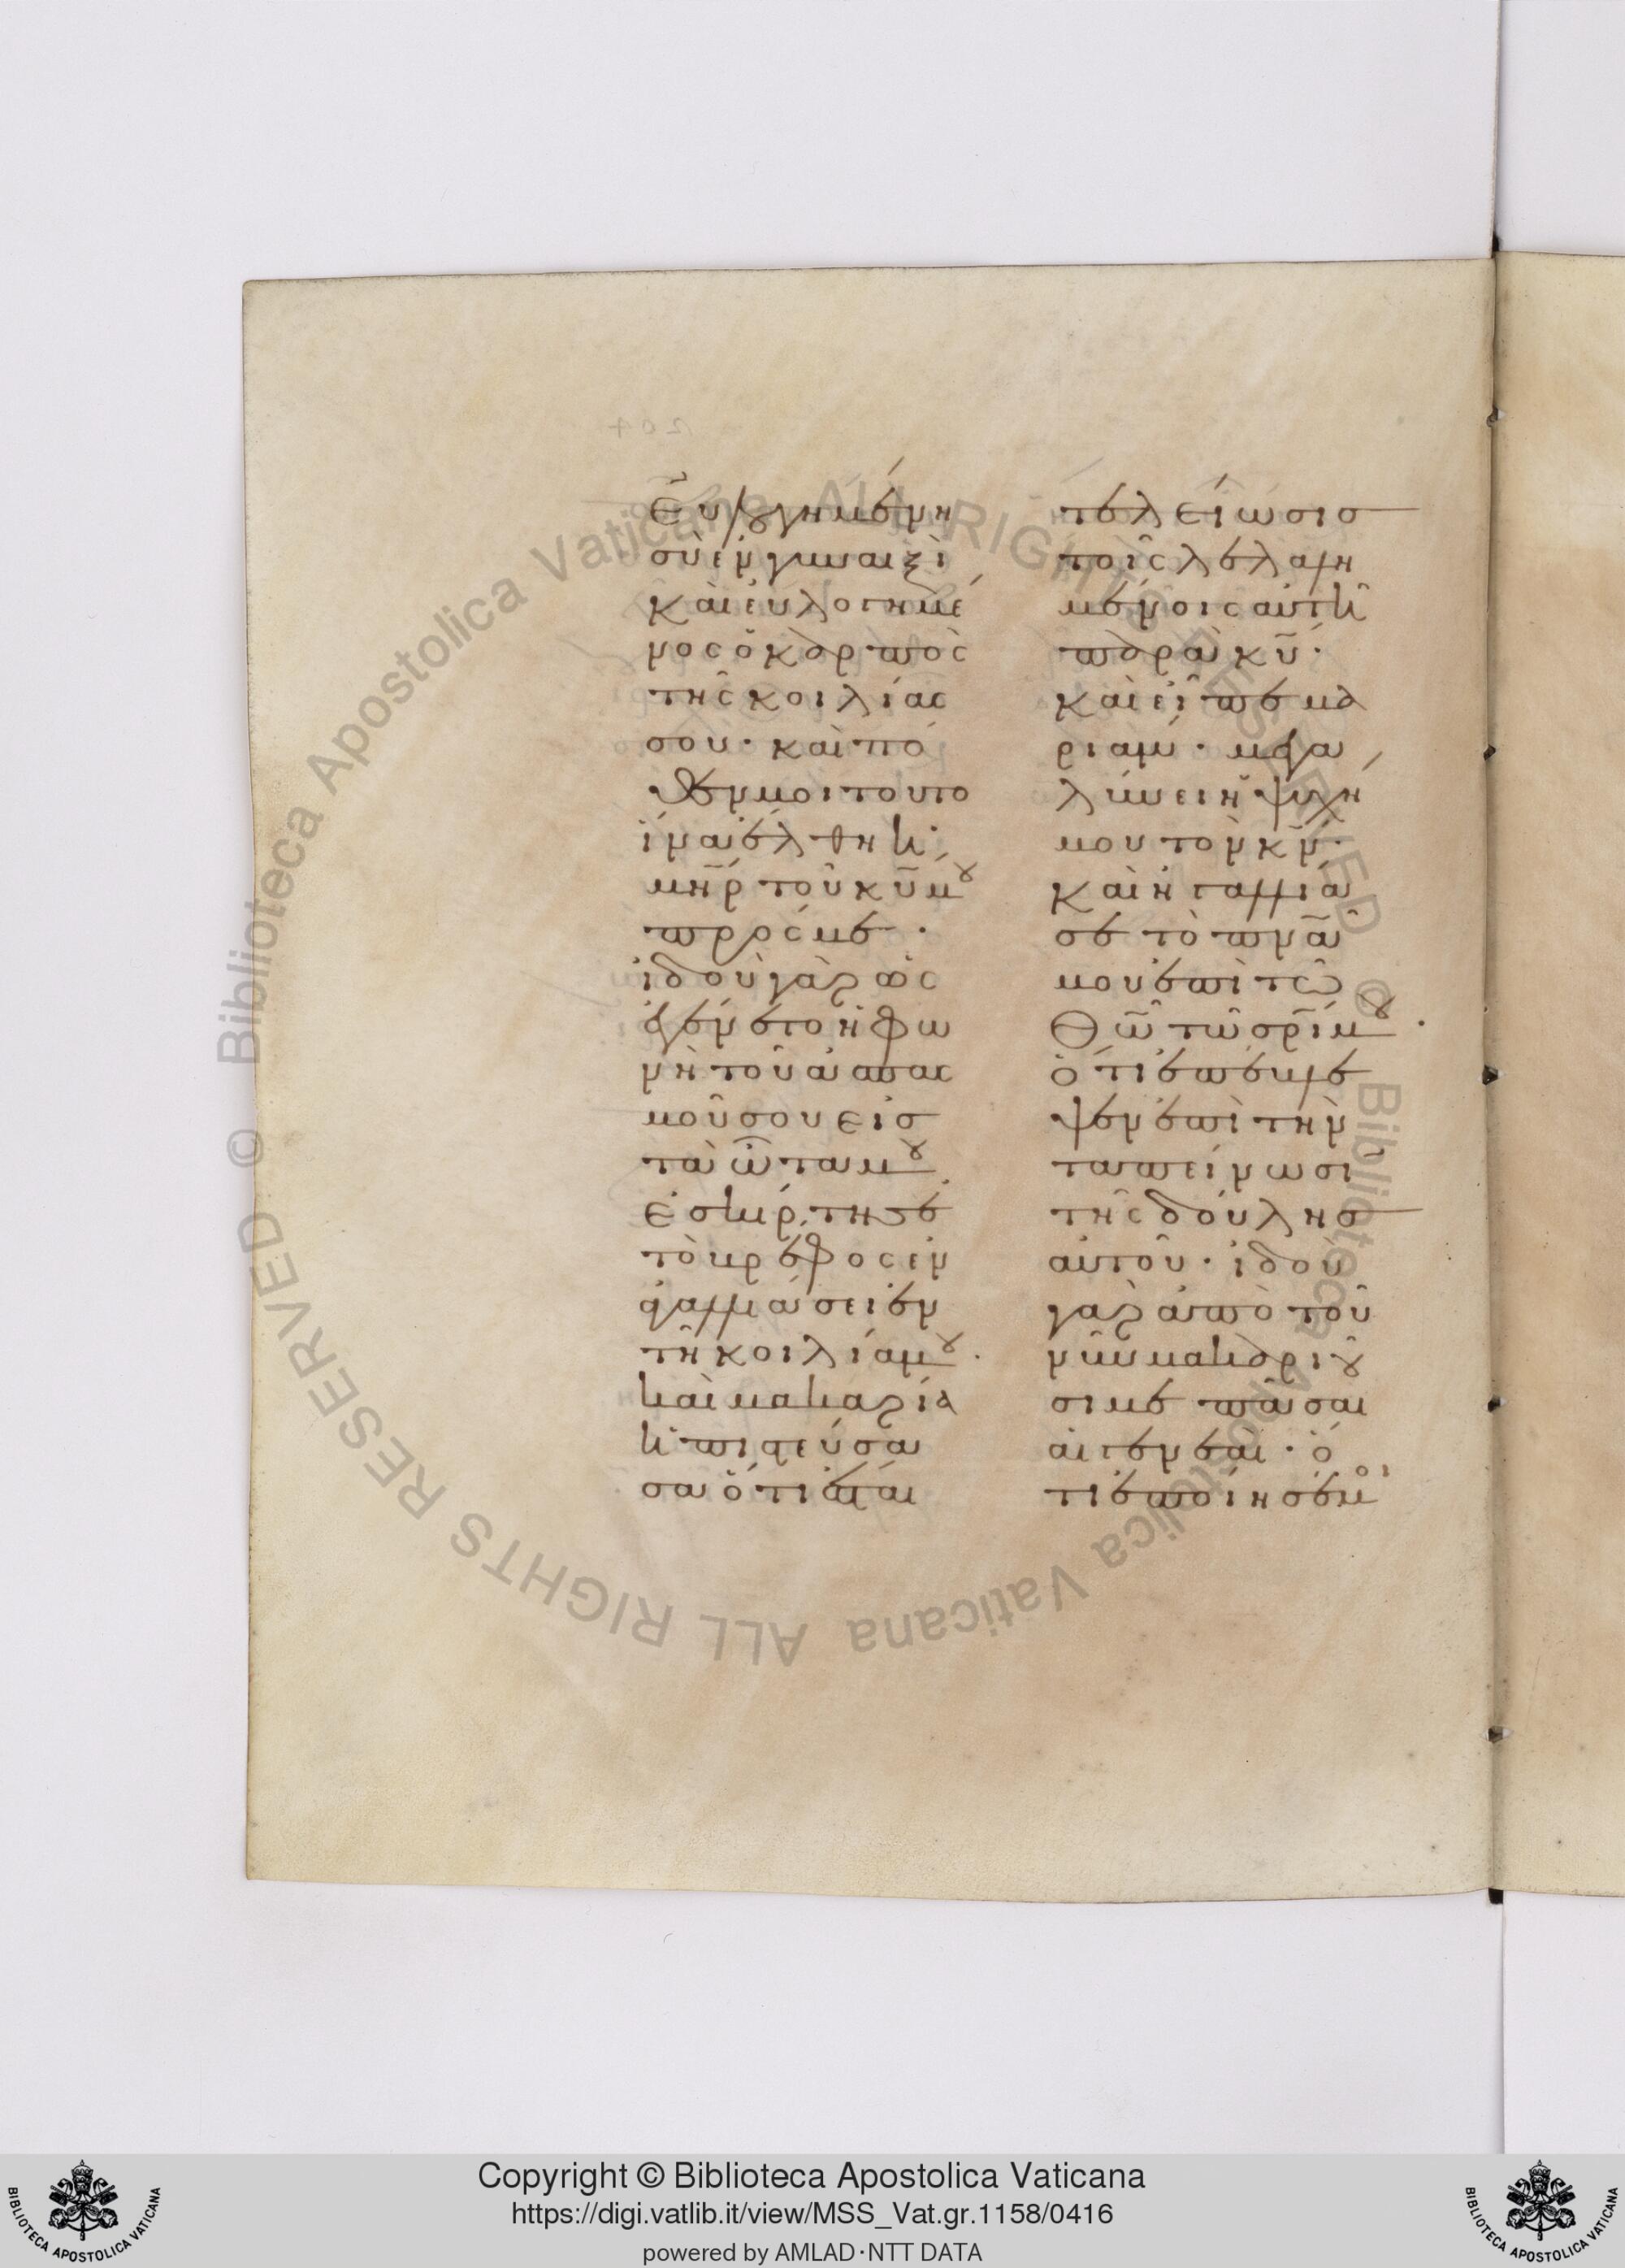 Εὐλογημένη
σὺ ἐν γυναιξὶ
καὶ εὐλογημέ
νος ὁ καρπὸς
τῆς κοιλίας
σου· καὶ πό
θεν μοι τοῦτο
ἵνα ἔλθη ἡ
μη̅ρ τοῦ κ̅υ μου
πρός με·
ἰδοὺ γὰρ ὡς
ἐγένετο ἡ φω
νὴ τοῦ ἀσπασ
μοῦ σου εἰς
τὰ ὦτα μου
ἐσκίρτησε
τὸ βρέφος ἐν
ἀγαλλιάσει ἐν
τῆ κοιλία μου·
καὶ μακαρία
ἡ πιστεύσα
σα ὅτι ἔσται
τελείωσις
τοῖς λελαλη
μένοις αὐτῆ
παρὰ κ̅υ·
καὶ εἶπε μα
ριάμ· μεγα
λύνει ἡ ψυχή
μου τὸν κ̅ν·
καὶ ἠγαλλία
σε τὸ π̅ν̅α
μου ἐπὶ τῶ
θ̅ω τῶ σ̅ρ̅ι μου·
ὅτι ἐπέβλε
ψεν ἐπὶ τὴν
ταπείνωσιν
τῆς δούλης
αὐτοῦ· ἰδοὺ
γὰρ ἀπὸ τοῦ
νῦν μακαριοῦ
σι με πᾶσαι
αἱ γενεαί· ὅ
τι ἐποίησέ μοι
Copyright © Biblioteca Apostolica Vaticana
https://digi.vatlib.it/view/MSS_Vat.gr.1158/0416
powered by AMLAD·NTT DATA
BIBLIOTECA APOSTOLICA VATICANA
BIBLIOTECA APOSTOLICA VATICANA
© Biblioteca Apostolica Vaticana ALL RIGHTS RESERVED
© Biblioteca Apostolica Vaticana ALL RIGHTS RESERVED